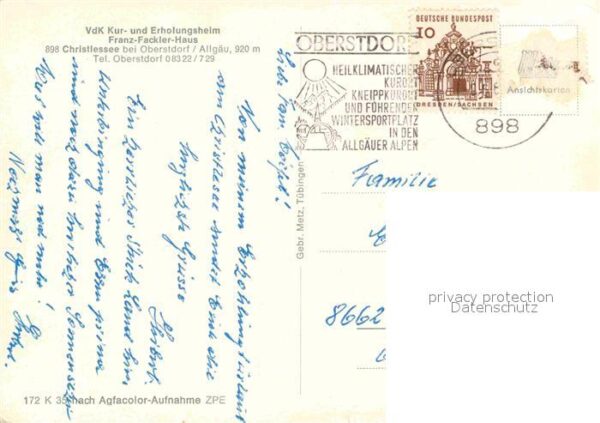 VdK Kur- und Erholungsheim
Franz-Fackler-Haus
898 Christlessee bei Oberstdorf / Allgäu, 920 m
Tel. Oberstdorf 08322 / 729
Von meinem Erholungsurlaub
am Christlesee sendet Euch die
herzlichsten Grüsse
Ein herrliches Stück Land hier,
Unterbringung und Essen prima
und noch dazu herrlicher Sonnenschein
Was will man noch mehr!
Nochmals
Gebr. Metz, Tübingen
172 K 35 nach Agfacolor-Aufnahme ZPE
OBERSTDORF
HEILKLIMATISCHER
KURORT
KNEIPPKURORT
UND FÜHRENDER
WINTERSPORTPLATZ
IN DEN
ALLGÄUER ALPEN
DEUTSCHE BUNDESPOST
10
DRESDEN/SACHSEN
898
Ansichtskarten
Familie
8662
privacy protection
Datenschutz